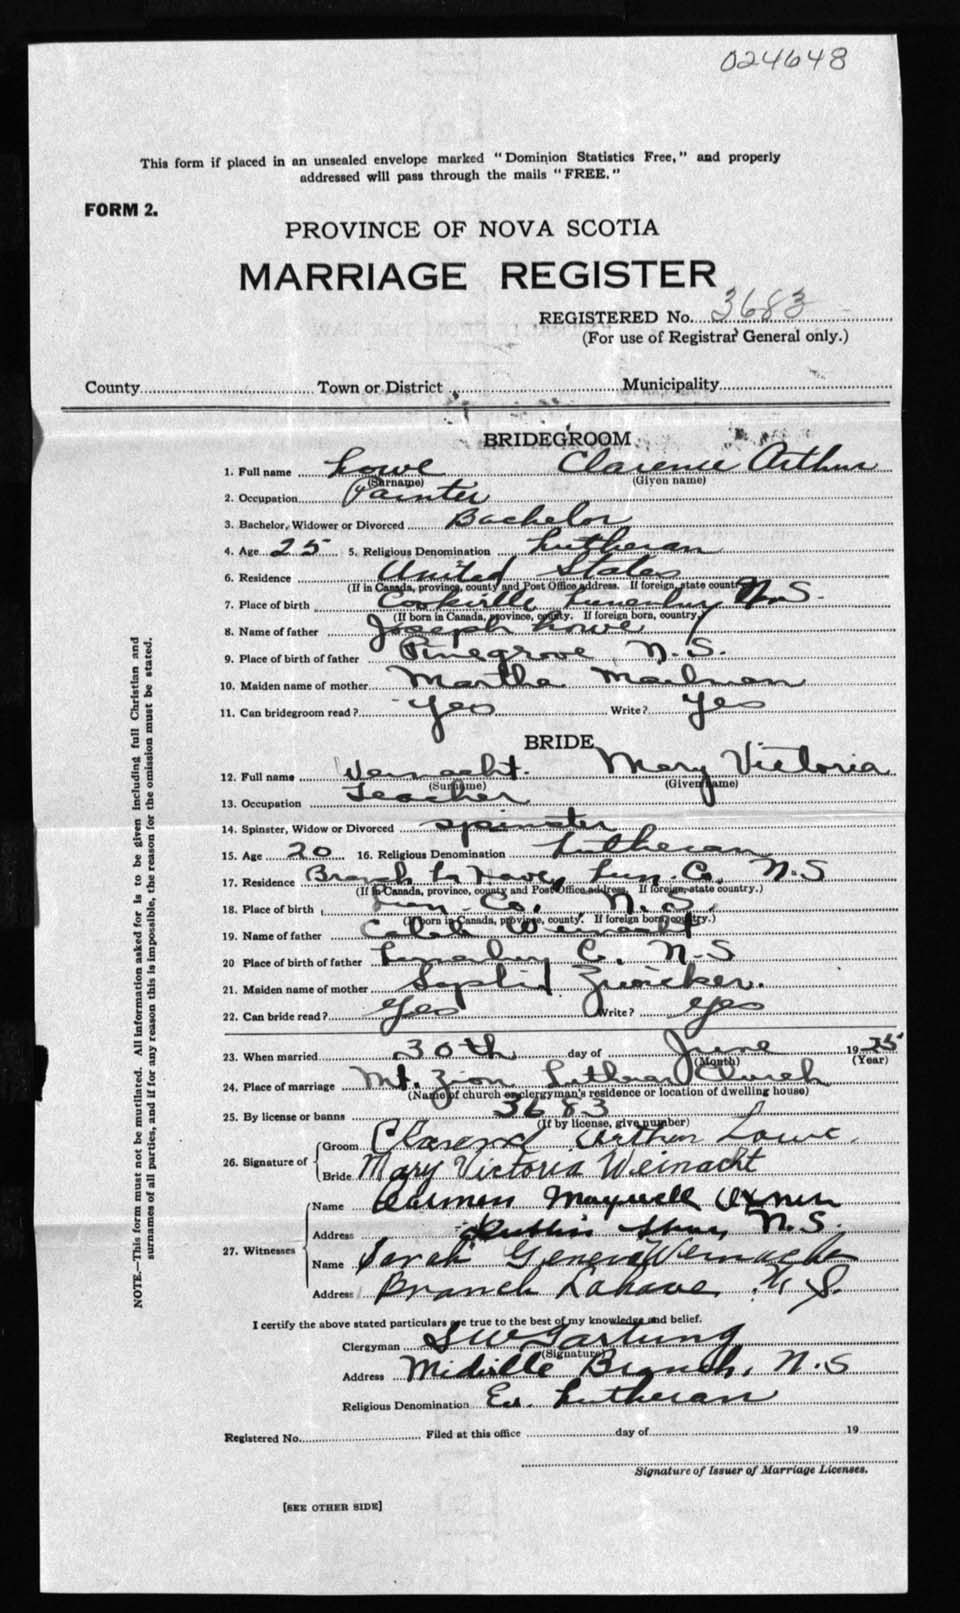 024648
This form if placed in an unsealed envelope marked "Dominion Statistics Free," and properly
addressed will pass through the mails "FREE."
FORM 2.
PROVINCE OF NOVA SCOTIA
MARRIAGE REGISTER
REGISTERED No. 3683
(For use of Registrar General only.)
County Town or District Municipality
BRIDEGROOM
1. Full name Lowe Clarence Arthur
(Surname) (Given name)
2. Occupation Painter
3. Bachelor, Widower or Divorced Bachelor
4. Age 25 5. Religious Denomination Lutheran
6. Residence United States
(If in Canada, province, county and Post Office address. If foreign, state country.)
7. Place of birth Cookville Lunenburg N.S.
(If born in Canada, province, county. If foreign born, country.)
8. Name of father Joseph Lowe
9. Place of birth of father Pinegrove N.S.
10. Maiden name of mother Martha Mailman
11. Can bridegroom read? Yes Write? Yes
BRIDE
12. Full name Weinacht. Mary Victoria
(Surname) (Given name)
13. Occupation Teacher
14. Spinster, Widow or Divorced spinster
15. Age 20 16. Religious Denomination Lutheran
17. Residence Branch La Have, Lun. Co. N.S
(If in Canada, province, county and Post Office address. If foreign, state country.)
18. Place of birth Lun. Co. N.S.
(If born in Canada, province, county. If foreign born, country.)
19. Name of father Caleb Weinacht
20 Place of birth of father Lunenburg C. N.S
21. Maiden name of mother Zwicker.
22. Can bride read? Yes Write? Yes
23. When married 30th day of June 1925
(Month) (Year)
24. Place of marriage Mt. Zion Lutheran Church
(Name of church or clergyman's residence or location of dwelling house)
25. By license or banns 3683
(If by license, give number)
26. Signature of Groom Clarence Arthur Lowe.
Bride Mary Victoria Weinacht
27. Witnesses Name Carmen Maxwell
Address N.S.
Name Sarah Weinacht
Address Branch Lahave, N.S.
I certify the above stated particulars are true to the best of my knowledge and belief.
Clergyman
(Signature)
Address Midville Branch, N.S
Religious Denomination Ev. Lutheran
Registered No. Filed at this office day of 19
Signature of Issuer of Marriage Licenses.
[SEE OTHER SIDE]
NOTE.—This form must not be mutilated. All information asked for is to be given including full Christian and
surnames of all parties, and if for any reason this is impossible, the reason for the omission must be stated.